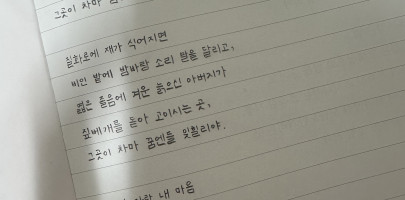 그곳이 차마
질화로에 재가 식어지면
비인 밭에 밤바람 소리 말을 달리고,
엷은 졸음에 겨운 늙으신 아버지가
짚베개를 돋아 고이시는 곳,
그곳이 차마 꿈엔들 잊힐리야.
내 마음